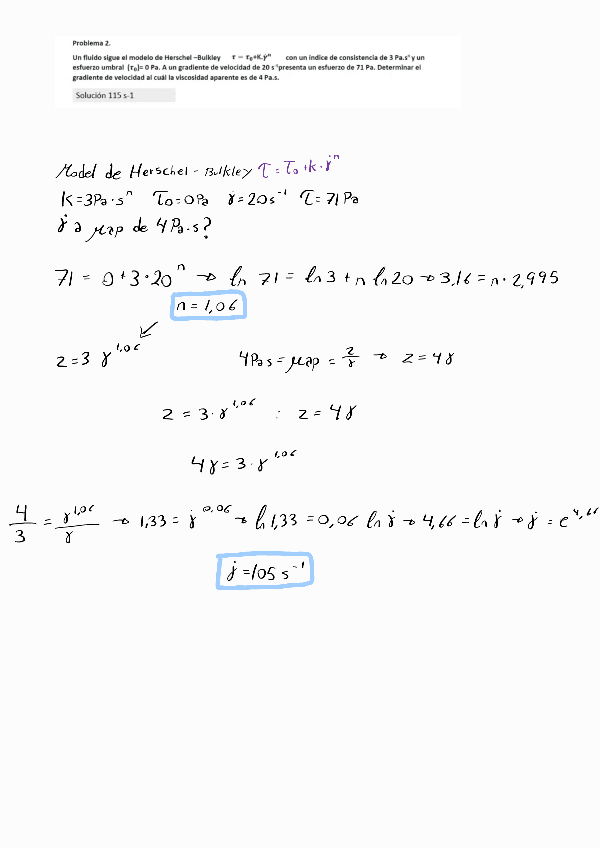 Problema 2.
Un fluido sigue el modelo de Herschel –Bulkley τ = τ₀+K.γ̇ⁿ con un índice de consistencia de 3 Pa.sⁿ y un
esfuerzo umbral (τ₀)= 0 Pa. A un gradiente de velocidad de 20 s⁻¹presenta un esfuerzo de 71 Pa. Determinar el
gradiente de velocidad al cuál la viscosidad aparente es de 4 Pa.s.
Solución 115 s-1
Model de Herschel - Bulkley τ = τ₀ + k · γ̇ⁿ
K = 3Pa · sⁿ τ₀ = 0Pa γ̇ = 20 s⁻¹ τ = 71 Pa
γ̇ a μap de 4 Pa·s?
71 = 0 + 3 · 20ⁿ → ln 71 = ln 3 + n ln 20 → 3,16 = n · 2,995
n = 1,06
z = 3 γ^1,06 4Pas = μap = z/γ → z = 4γ
z = 3 · γ^1,06 : z = 4γ
4γ = 3 · γ^1,06
4/3 = γ^1,06/γ → 1,33 = γ̇^0,06 → ln 1,33 = 0,06 ln γ̇ → 4,66 = ln γ̇ → γ̇ = e^4,66
γ̇ = 105 s⁻¹